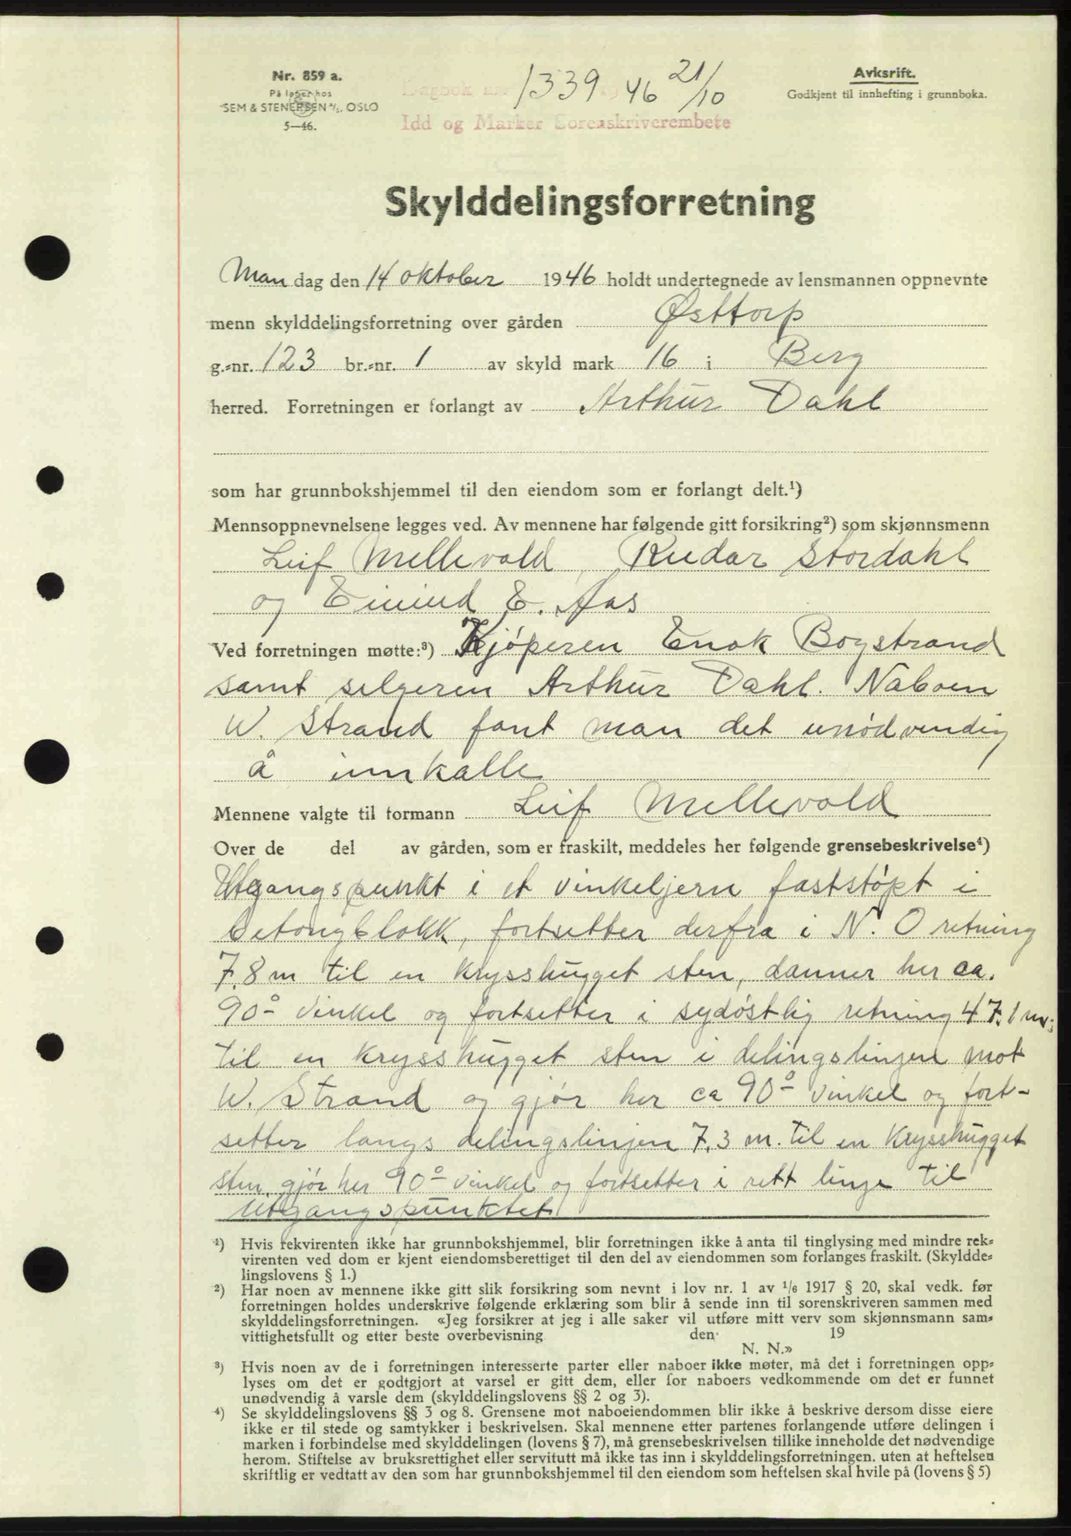 Nr. 859 a.
På lager hos
SEM & STENERSEN A/S. OSLO
5—46.
Dagbok nr. 1339 1946 21/10
Idd og Marker Sorenskriverembete
Avksrift.
Godkjent til innhefting i grunnboka.
Skylddelingsforretning
Mandag den 14 oktober 1946 holdt undertegnede av lensmannen oppnevnte
menn skylddelingsforretning over gården Østtorp
g.-nr. 123 br.-nr. 1 av skyld mark 16 i Berg
herred. Forretningen er forlangt av Arthur Dahl
som har grunnbokshjemmel til den eiendom som er forlangt delt.¹)
Mennsoppnevnelsene legges ved. Av mennene har følgende gitt forsikring²) som skjønnsmenn
Leif Mellevold, Reidar Stordahl
og Eivind E. Aas
Ved forretningen møtte:³) Kjöperen Enok Bogstrand
samt selgeren Arthur Dahl. Naboen
W. Strand fant man det unödvendig
å innkalle
Mennene valgte til formann Leif Mellevold
Over de del av gården, som er fraskilt, meddeles her følgende grensebeskrivelse⁴)
Utgangspunkt i et vinkeljern faststöpt i
betongblokk, fortsetter derfra i N. O retning
7.8 m til en krysshugget sten, danner her ca.
90° vinkel og fortsetter i sydöstlig retning 47.1 m.
til en krysshugget sten i delingslinjen mot
W. Strand og gjör her ca 90° vinkel og fort-
setter langs delingslinjen 7.3 m. til en krysshugget
sten, gjör her 90° vinkel og fortsetter i rett linje til
Utgangspunktet
¹) Hvis rekvirenten ikke har grunnbokshjemmel, blir forretningen ikke å anta til tinglysing med mindre rek-
virenten ved dom er kjent eiendomsberettiget til den del av eiendommen som forlanges fraskilt. (Skyldde-
lingslovens § 1.)
²) Har noen av mennene ikke gitt slik forsikring som nevnt i lov nr. 1 av 1/6 1917 § 20, skal vedk. før
forretningen holdes underskrive følgende erklæring som blir å sende inn til sorenskriveren sammen med
skylddelingsforretningen. «Jeg forsikrer at jeg i alle saker vil utføre mitt verv som skjønnsmann sam-
vittighetsfullt og etter beste overbevisning den 19
N. N.»
³) Hvis noen av de i forretningen interesserte parter eller naboer ikke møter, må det i forretningen opp-
lyses om det er godtgjort at varsel er gitt dem, eller for naboers vedkommende om det er funnet
unødvendig å varsle dem (skylddelingslovens §§ 2 og 3).
⁴) Se skylddelingslovens §§ 3 og 8. Grensene mot naboeiendommen blir ikke å beskrive dersom disse eiere
ikke er til stede og samtykker i beskrivelsen. Skal mennene etter partenes forlangende utføre delingen i
marken i forbindelse med skylddelingen (lovens § 7), må grensebeskrivelsen tillike inneholde det nødvendige
herom. Stiftelse av bruksrettighet eller servitutt må ikke tas inn i skylddelingsforretningen. uten at heftelsen
skriftlig er vedtatt av den som har grunnbokshjemmel til den eiendom som heftelsen skal hvile på (lovens § 5)